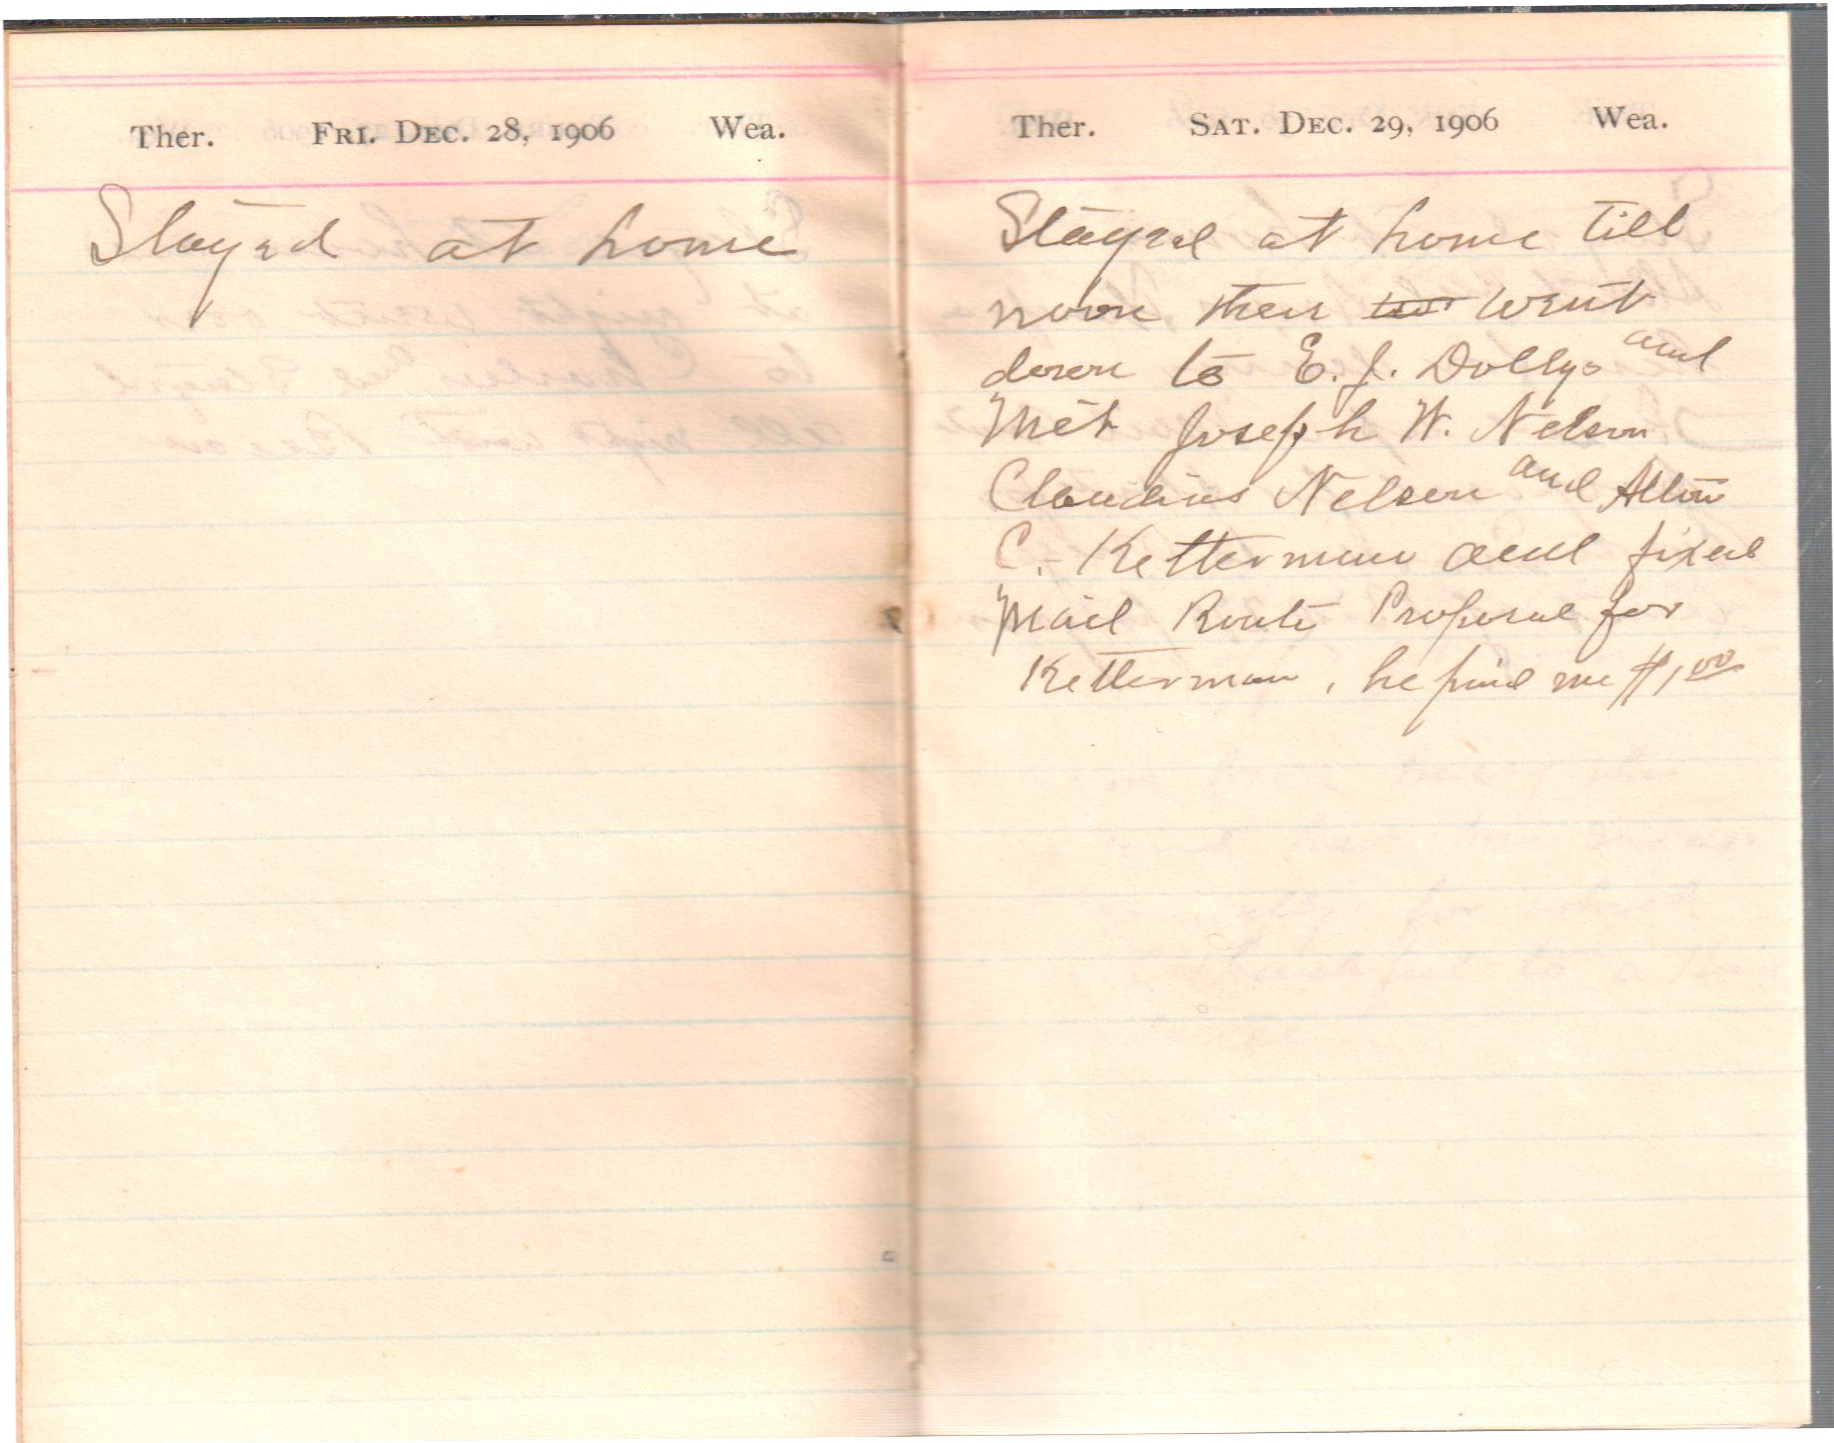 Ther. FRI. DEC. 28, 1906 Wea.
Stayed at home
Ther. SAT. DEC. 29, 1906 Wea.
Stayed at home till
noon then went
down to E. J. Dollys and
Met Joseph W. Nelson
Claudius Nelson and
C. Ketterman and fixed
Mail Route Proposal for
Ketterman, he paid me $1,00